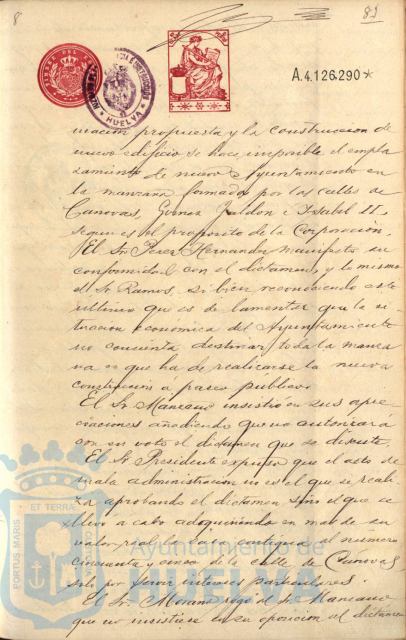 8
82
A.4.126.290*
HUELVA
nación propuesta y la construcción de
nuevo edificio se hace imposible el empla
zamiento de nuevo Ayuntamiento en
la manzana formada por las calles de
Canovas, Gomez Jaldon e Isabel II,
segun es el proposito de la Corporación.
El Sr. Perez Hernandez manifestó su
conformidad con el dictamen, y lo mismo
el Sr. Ramos, si bien reconociendo este
ultimo que es de lamentar que la si-
tuación economica del Ayuntamiento
no consienta destinar toda la manza
na en que ha de realizarse la nueva
construcción a paseo público.
El Sr. Manzano insistió en sus apre-
ciaciones añadiendo que no autorizara
con su voto el dictamen que se discute.
El Sr. Presidente expuso que el acto de
mala administracion no es el que se reali-
za aprobando el dictamen sino el que se
llevó a cabo adquiriendo en mas de su
valor real la casa contigua al numero
cincuenta y cinco de la calle de Canovas
solo por servir intereses particulares.
El Sr. Moreno rogó al Sr. Manzano
que no insistiese en su oposición al dictamen
PORTUS MARIS
ET TERRÆ
Ayuntamiento de
HUEL